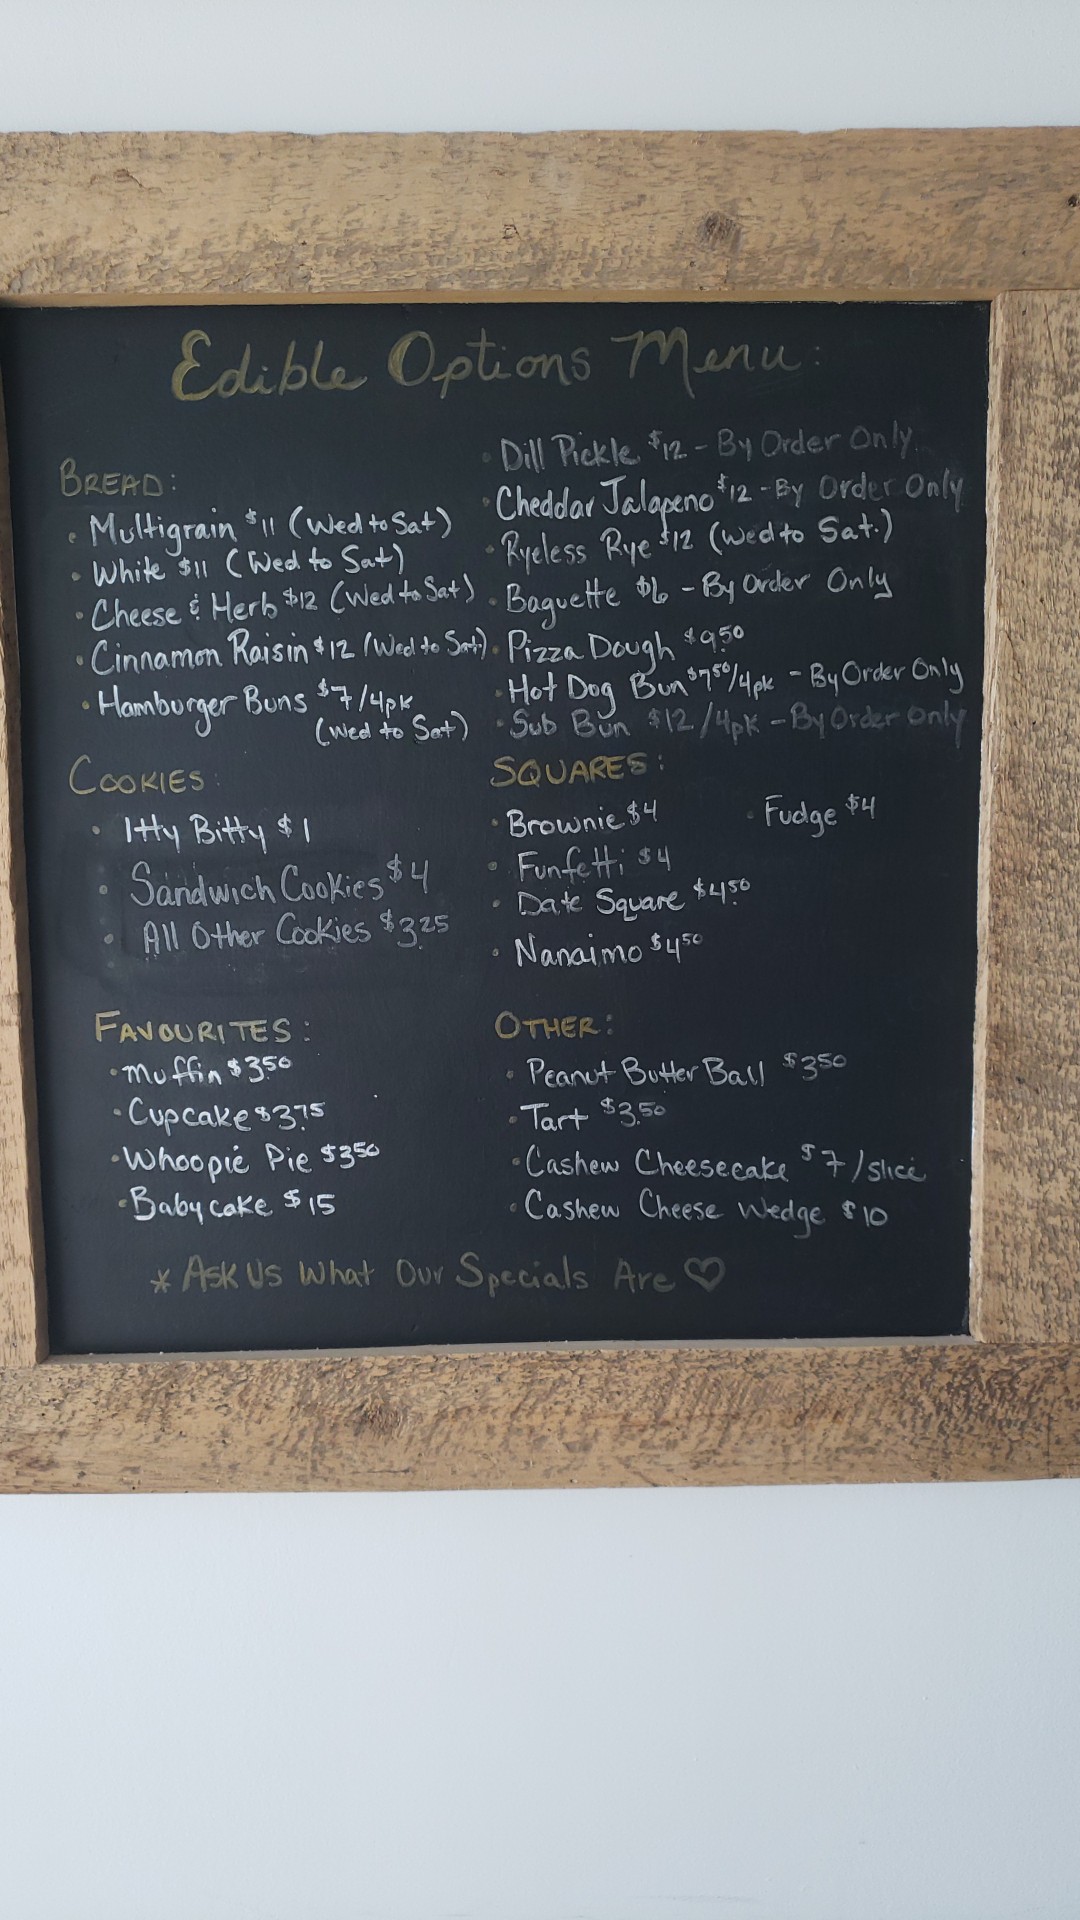 Edible Options Menu:
BREAD:
• Multigrain $11 (Wed to Sat)
• White $11 (Wed to Sat)
• Cheese & Herb $12 (Wed to Sat)
• Cinnamon Raisin $12 (Wed to Sat)
• Hamburger Buns $7/4pk
(Wed to Sat)
• Dill Pickle $12 - By Order Only
• Cheddar Jalapeno $12 - By Order Only
• Ryeless Rye $12 (Wed to Sat.)
• Baguette $6 - By Order Only
• Pizza Dough $9.50
• Hot Dog Bun $7.50/4pk - By Order Only
• Sub Bun $12/4pk - By Order Only
COOKIES:
• Itty Bitty $1
• Sandwich Cookies $4
• All Other Cookies $3.25
SQUARES:
• Brownie $4 • Fudge $4
• Funfetti $4
• Date Square $4.50
• Nanaimo $4.50
FAVOURITES:
• Muffin $3.50
• Cupcake $3.75
• Whoopie Pie $3.50
• Babycake $15
OTHER:
• Peanut Butter Ball $3.50
• Tart $3.50
• Cashew Cheesecake $7/slice
• Cashew Cheese Wedge $10
* Ask Us What Our Specials Are ♡